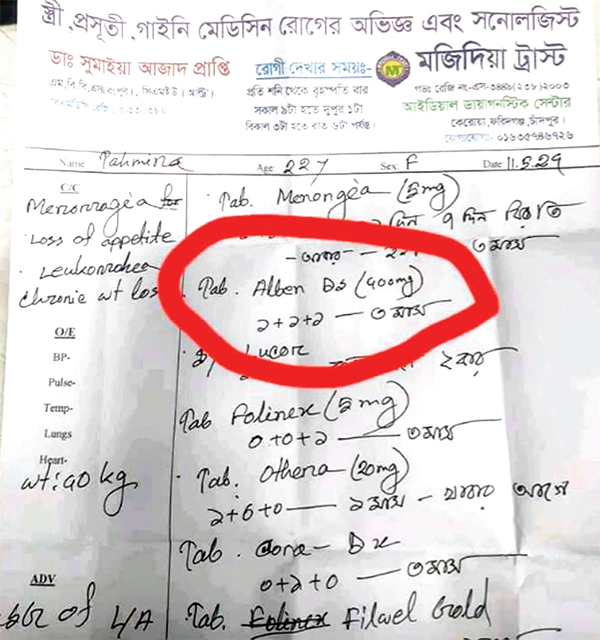 স্ত্রী, প্রসূতী, গাইনি মেডিসিন রোগের অভিজ্ঞ এবং সনোলজিস্ট
ডাঃ সুমাইয়া আজাদ প্রাপ্তি
রোগী দেখার সময়ঃ-
প্রতি শনি থেকে বৃহস্পতি বার
সকাল ৯টা হতে দুপুর ১টা
বিকাল ৩টা হতে রাত ৬টা পর্যন্ত।
মজিদিয়া ট্রাস্ট
গভঃ রেজি নং-এস-৩৪৪৯(২৩৮)২০০৩
আইডিয়াল ডায়াগনস্টিক সেন্টার
কেরোয়া, ফরিদগঞ্জ, চাঁদপুর।
যোগাযোগঃ- ০১৬৩৫৭৪৬৭২৬
Name Tahmina Age 22y Sex F Date 11.5.24
C/C
Menorragea for
Loss of appetite
Leukorrohea
chronic wt loss
O/E
BP-
Pulse-
Temp-
Lungs
Heart-
wt: 40 kg
ADV
of L/A
Tab. Menongea (5mg)
দিন ৭ দিন বিরতি
৩ মাস
Tab. Alben Ds (400mg)
১+১+১ — ৩ মাস
Lucor
Tab Folinex (5mg)
০+০+১ — ৩ মাস
Tab. Othera (20mg)
১+০+০ — ১ মাস - খাবার আগে
Tab. Cora-Dx
০+১+০ — ৩ মাস
Tab. Folinex Filwel Gold